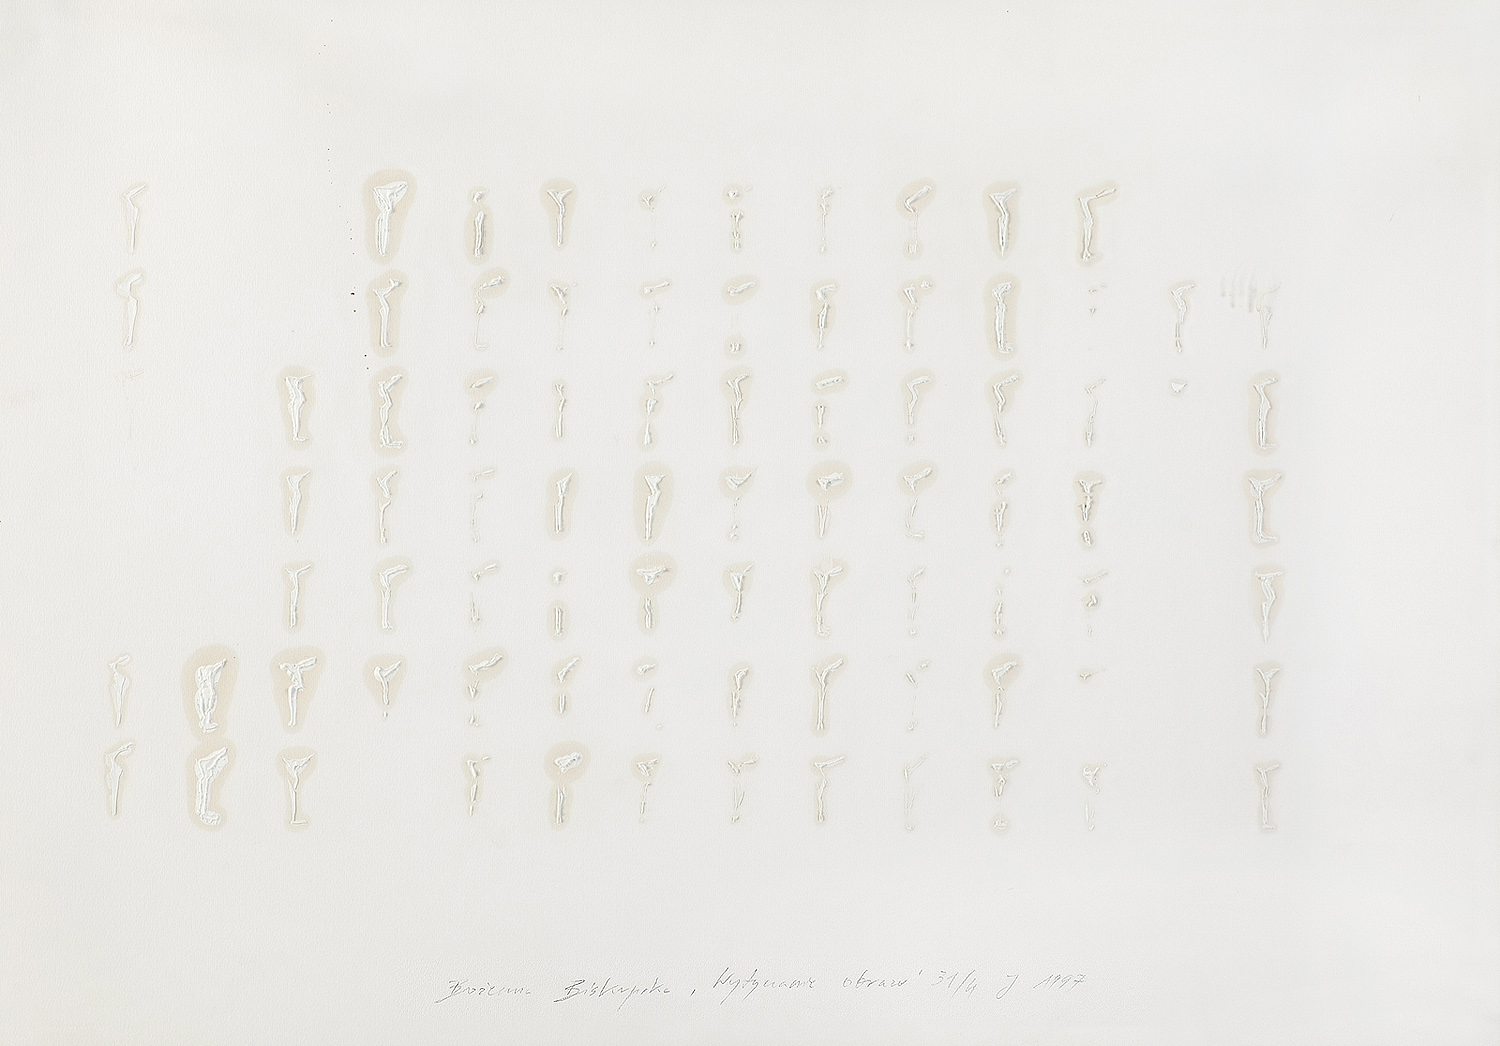 Bożenna Biskupska, "Wytyczanie obrazu" 31/4 J 1997